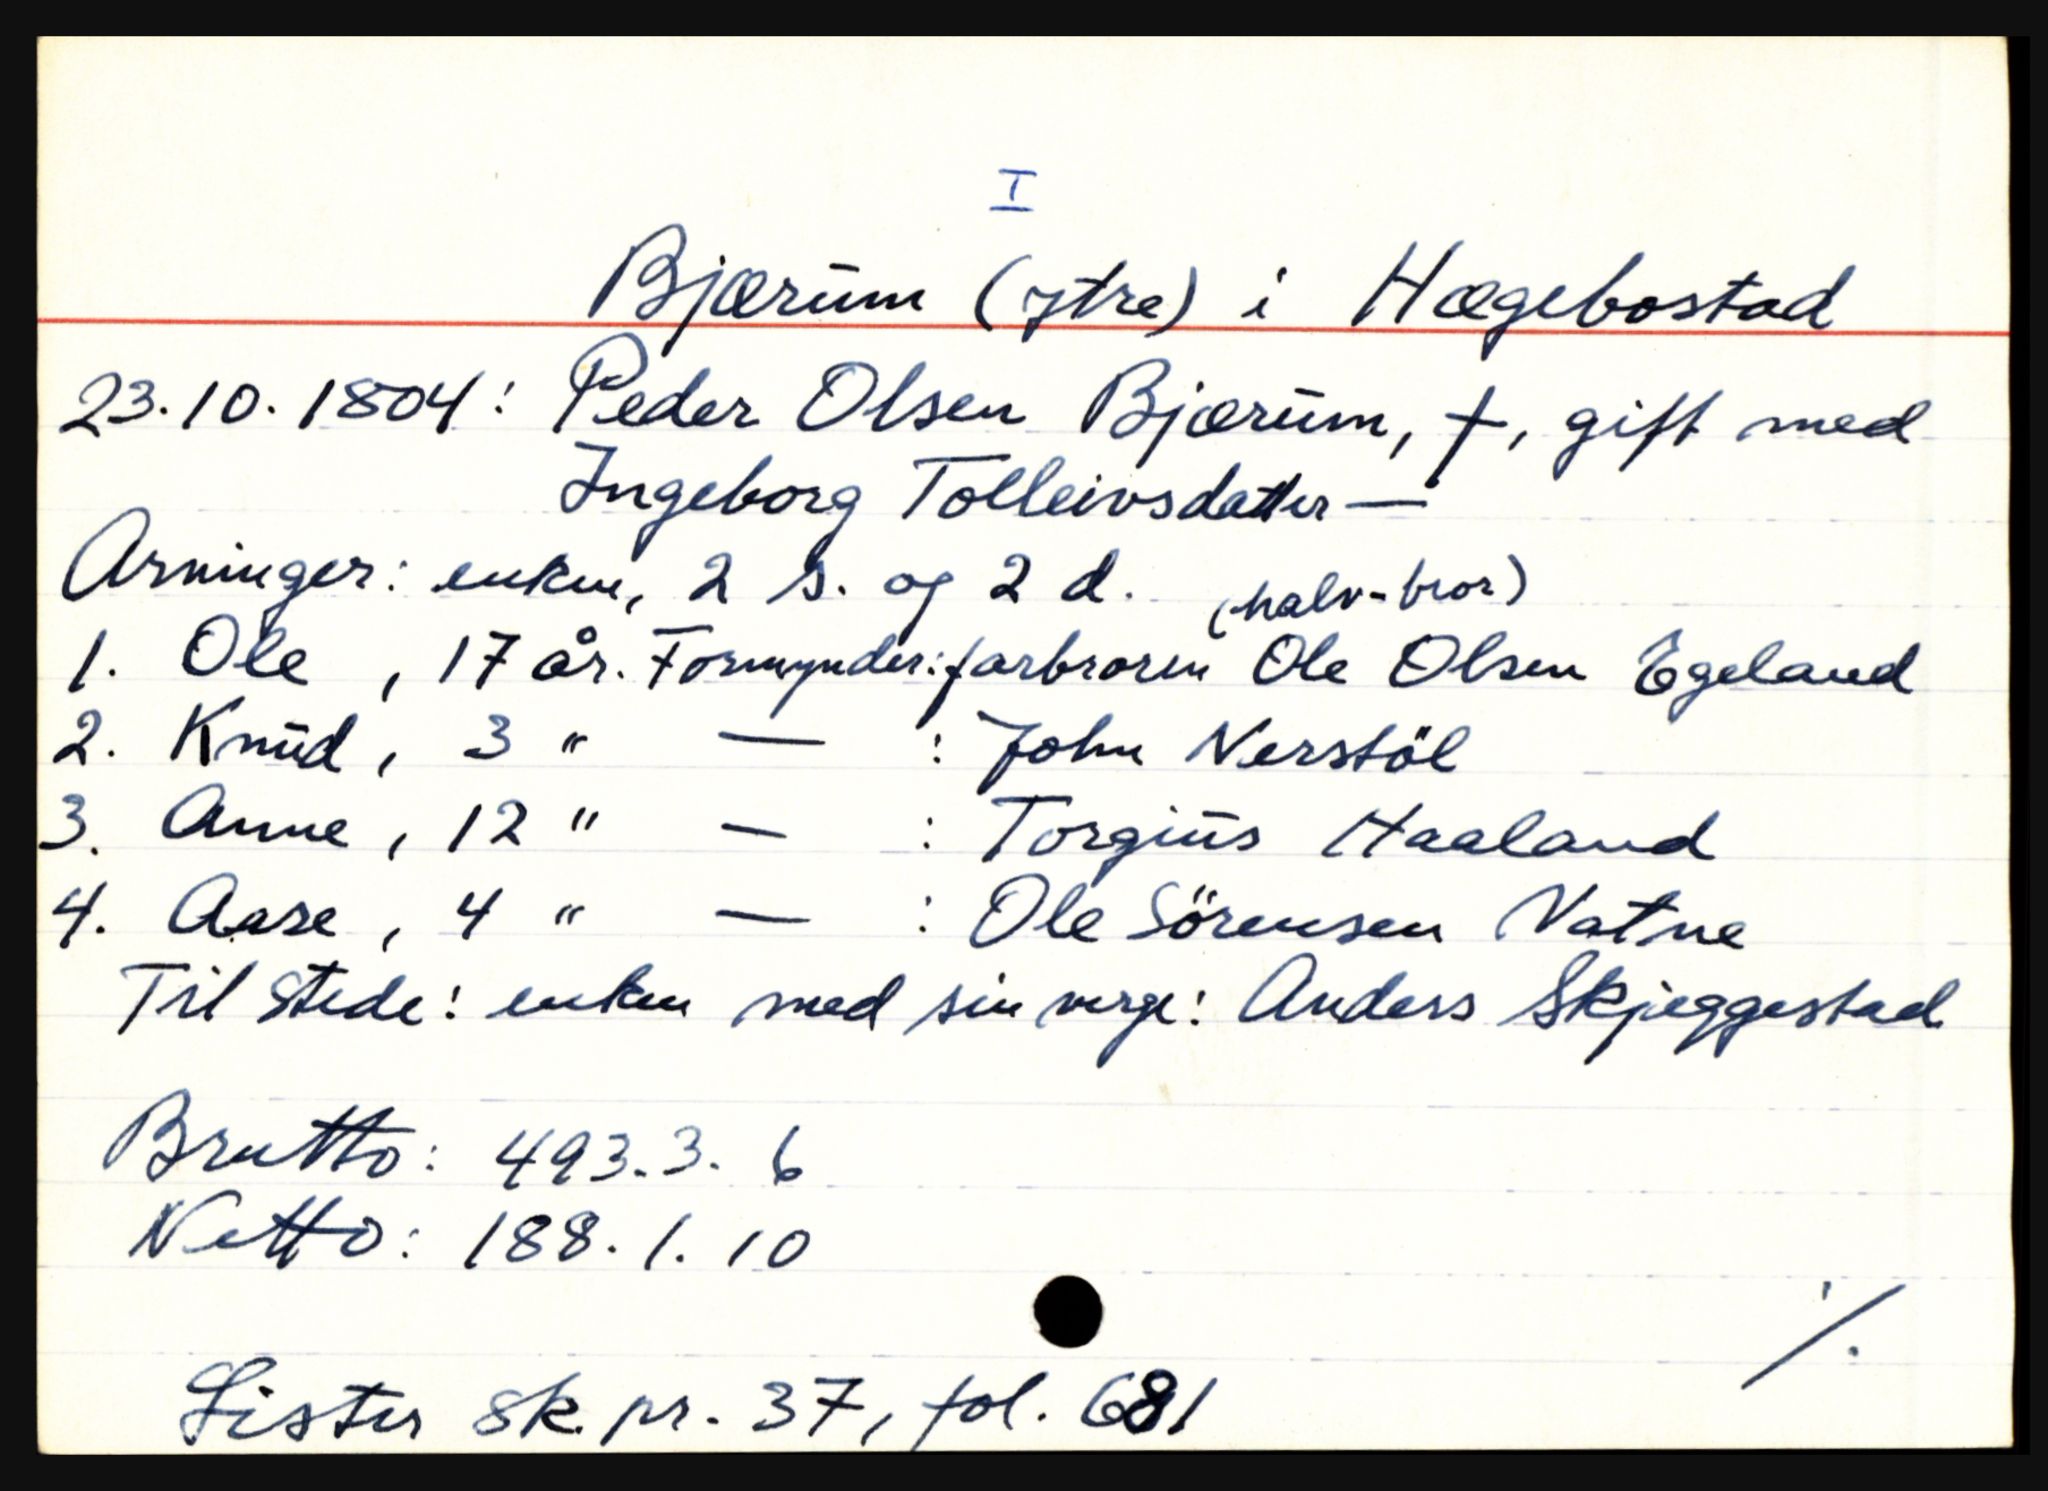 I
Bjærum (ytre) i Hægebostad
23.10.1804: Peder Olsen Bjærum, †, gift med
Ingeborg Tolleivsdatter —
Arvinger: enken, 2 s. og 2 d. (halv-bror)
1. Ole , 17 år. Formynder: farbroren Ole Olsen Egeland
2. Knud , 3 " — : John Nerstöl
3. Anne , 12 " — : Torgius Haaland
4. Aase , 4 " — : Ole Sörensen Vatne
Til stede: enken med sin verge: Anders Skjeggestad
Brutto: 493. 3. 6
Netto: 188. 1. 10
./.
Lister sk. pr. 37, fol. 681